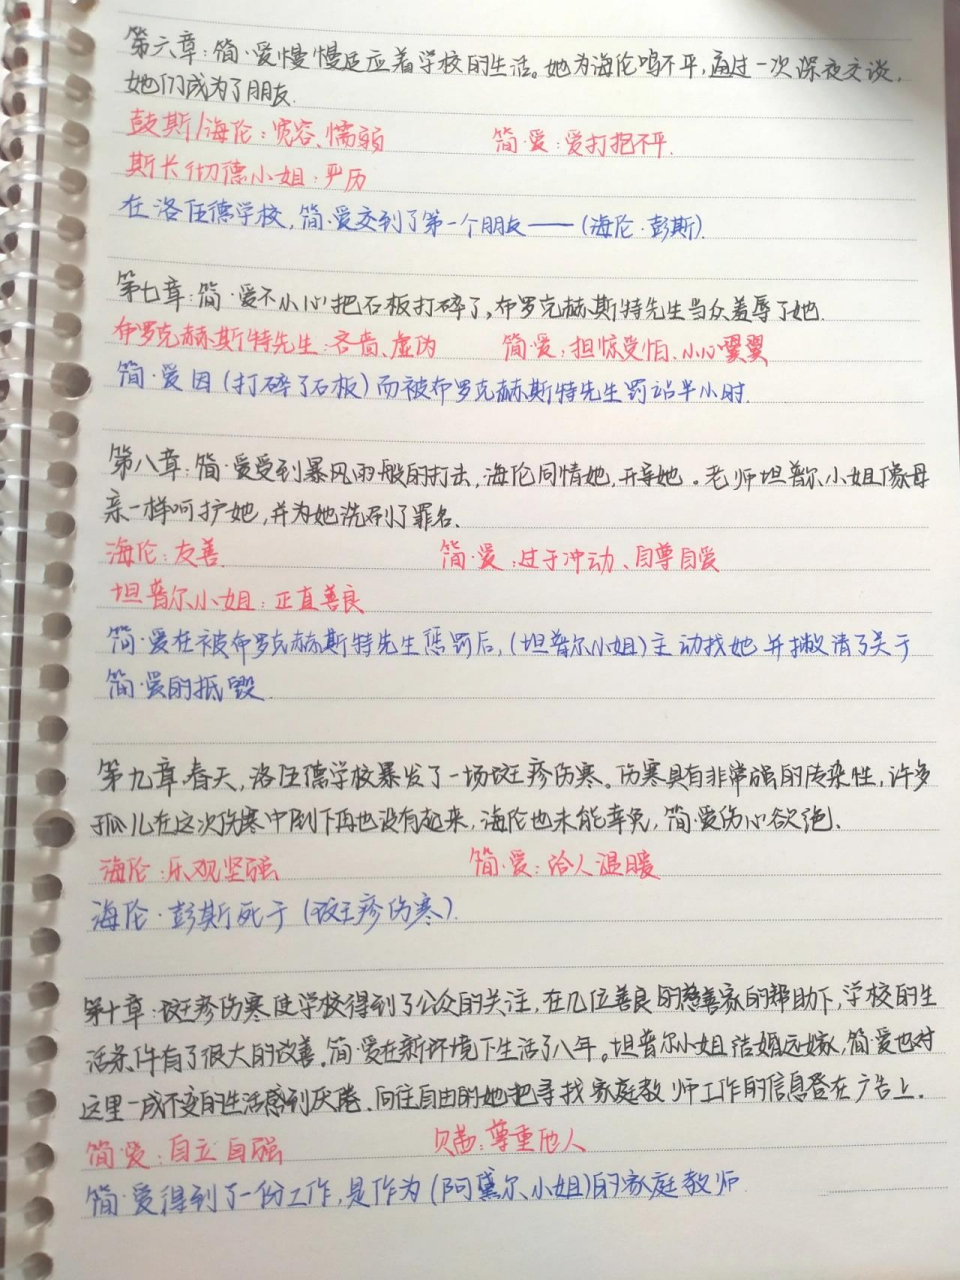 第六章：简·爱慢慢适应着学校的生活。她为海伦鸣不平，通过一次深夜交谈，
她们成为了朋友.
鼓斯/海伦：宽容、懦弱 简·爱：爱打抱不平.
斯长彻德小姐：严历
在洛伍德学校，简·爱交到了第一个朋友——(海伦·彭斯).
第七章：简·爱不小心把石板打碎了，布罗克赫斯特先生当众羞辱了她.
布罗克赫斯特先生：吝啬、虚伪 简·爱：担惊受怕、小心翼翼
简·爱因(打碎了石板)而被布罗克赫斯特先生罚站半小时.
第八章：简·爱受到暴风雨般的打击，海伦同情她，开导她。老师坦普尔小姐像母
亲一样呵护她，并为她洗刷了罪名.
海伦：友善. 简·爱：过于冲动、自尊自爱
坦普尔小姐：正直善良
简·爱在被布罗克赫斯特先生惩罚后，(坦普尔小姐)主动找她并撇清了关于
简·爱的抵毁.
第九章.春天，洛伍德学校暴发了一场斑疹伤寒。伤寒具有非常强的传染性，许多
孤儿在这次伤寒中倒下再也没有起来，海伦也未能幸免，简·爱伤心欲绝.
海伦：乐观坚强 简·爱：给人温暖
海伦·彭斯死于(斑疹伤寒).
第十章：斑疹伤寒使学校得到了公众的关注，在几位善良的慈善家的帮助下，学校的生
活条件有了很大的改善。简·爱在新环境下生活了八年。坦普尔小姐结婚远嫁，简·爱也对
这里一成不变的生活感到厌倦.向往自由的她把寻找家庭教师工作的信息登在广告上.
简·爱：自立自强 贝茜：尊重他人
简·爱得到了一份工作，是作为(阿黛尔小姐)的家庭教师.